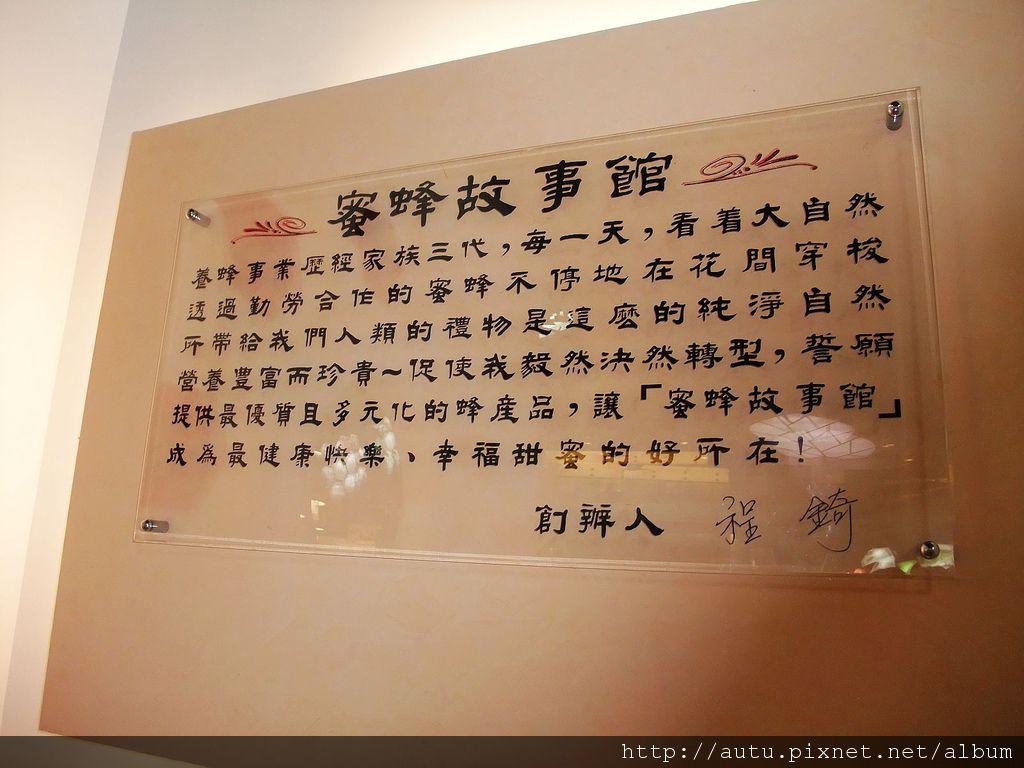 蜜蜂故事館
養蜂事業歷經家族三代，每一天，看着大自然
透過勤勞合作的蜜蜂不停地在花間穿梭
所帶給我們人類的禮物是這麼的純淨自然
營養豐富而珍貴~促使我毅然決然轉型，誓願
提供最優質且多元化的蜂產品，讓「蜜蜂故事館」
成為最健康快樂、幸福甜蜜的好所在！
創辦人 程 錡
http://autu.pixnet.net/album